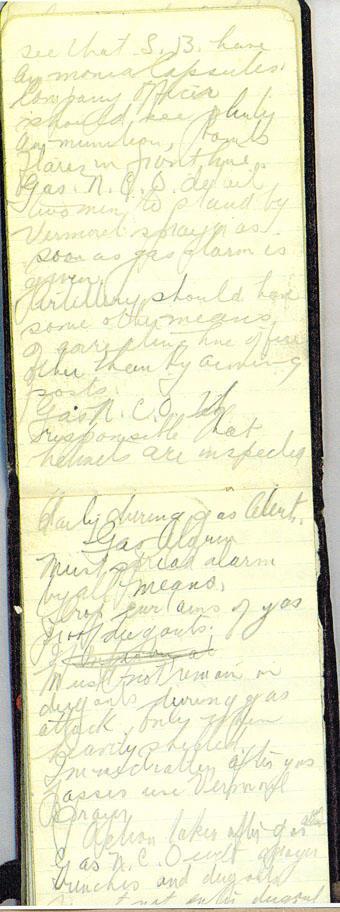 see that S. B. have
ammonia Capsules.
Company Officer
should see plenty
ammunition, bombs
flares in front line.
Gas. N. C. O. detail
two men to stand by
Vermorel sprayer as
soon as gas alarm is
given.
Artillery should have
some other means
of correcting line of fire
other than by aiming
posts.
Gas N. C. O.
responsible that
helmets are inspected
daily during gas Alert.
Gas Alarm
Must spread alarm
by all means.
Drop curtains of gas
proof dugouts.
Must not remain in
dugouts during gas
attack, only when
heavily shelled.
Immediately after gas
passes use Vermorel
Sprayer
Action taken after gas
Gas N. C. O. will spray
trenches and dugouts
not enter dugout